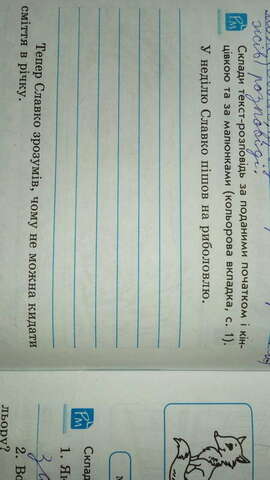 жів розповіді.
РМ
Склади текст-розповідь за поданими початком і кін-
цівкою та за малюнками (кольорова вкладка, с. 1).
У неділю Славко пішов на риболовлю.
Тепер Славко зрозумів, чому не можна кидати
сміття в річку.
РМ
Скла
1. Як
за
2. Во
льору?